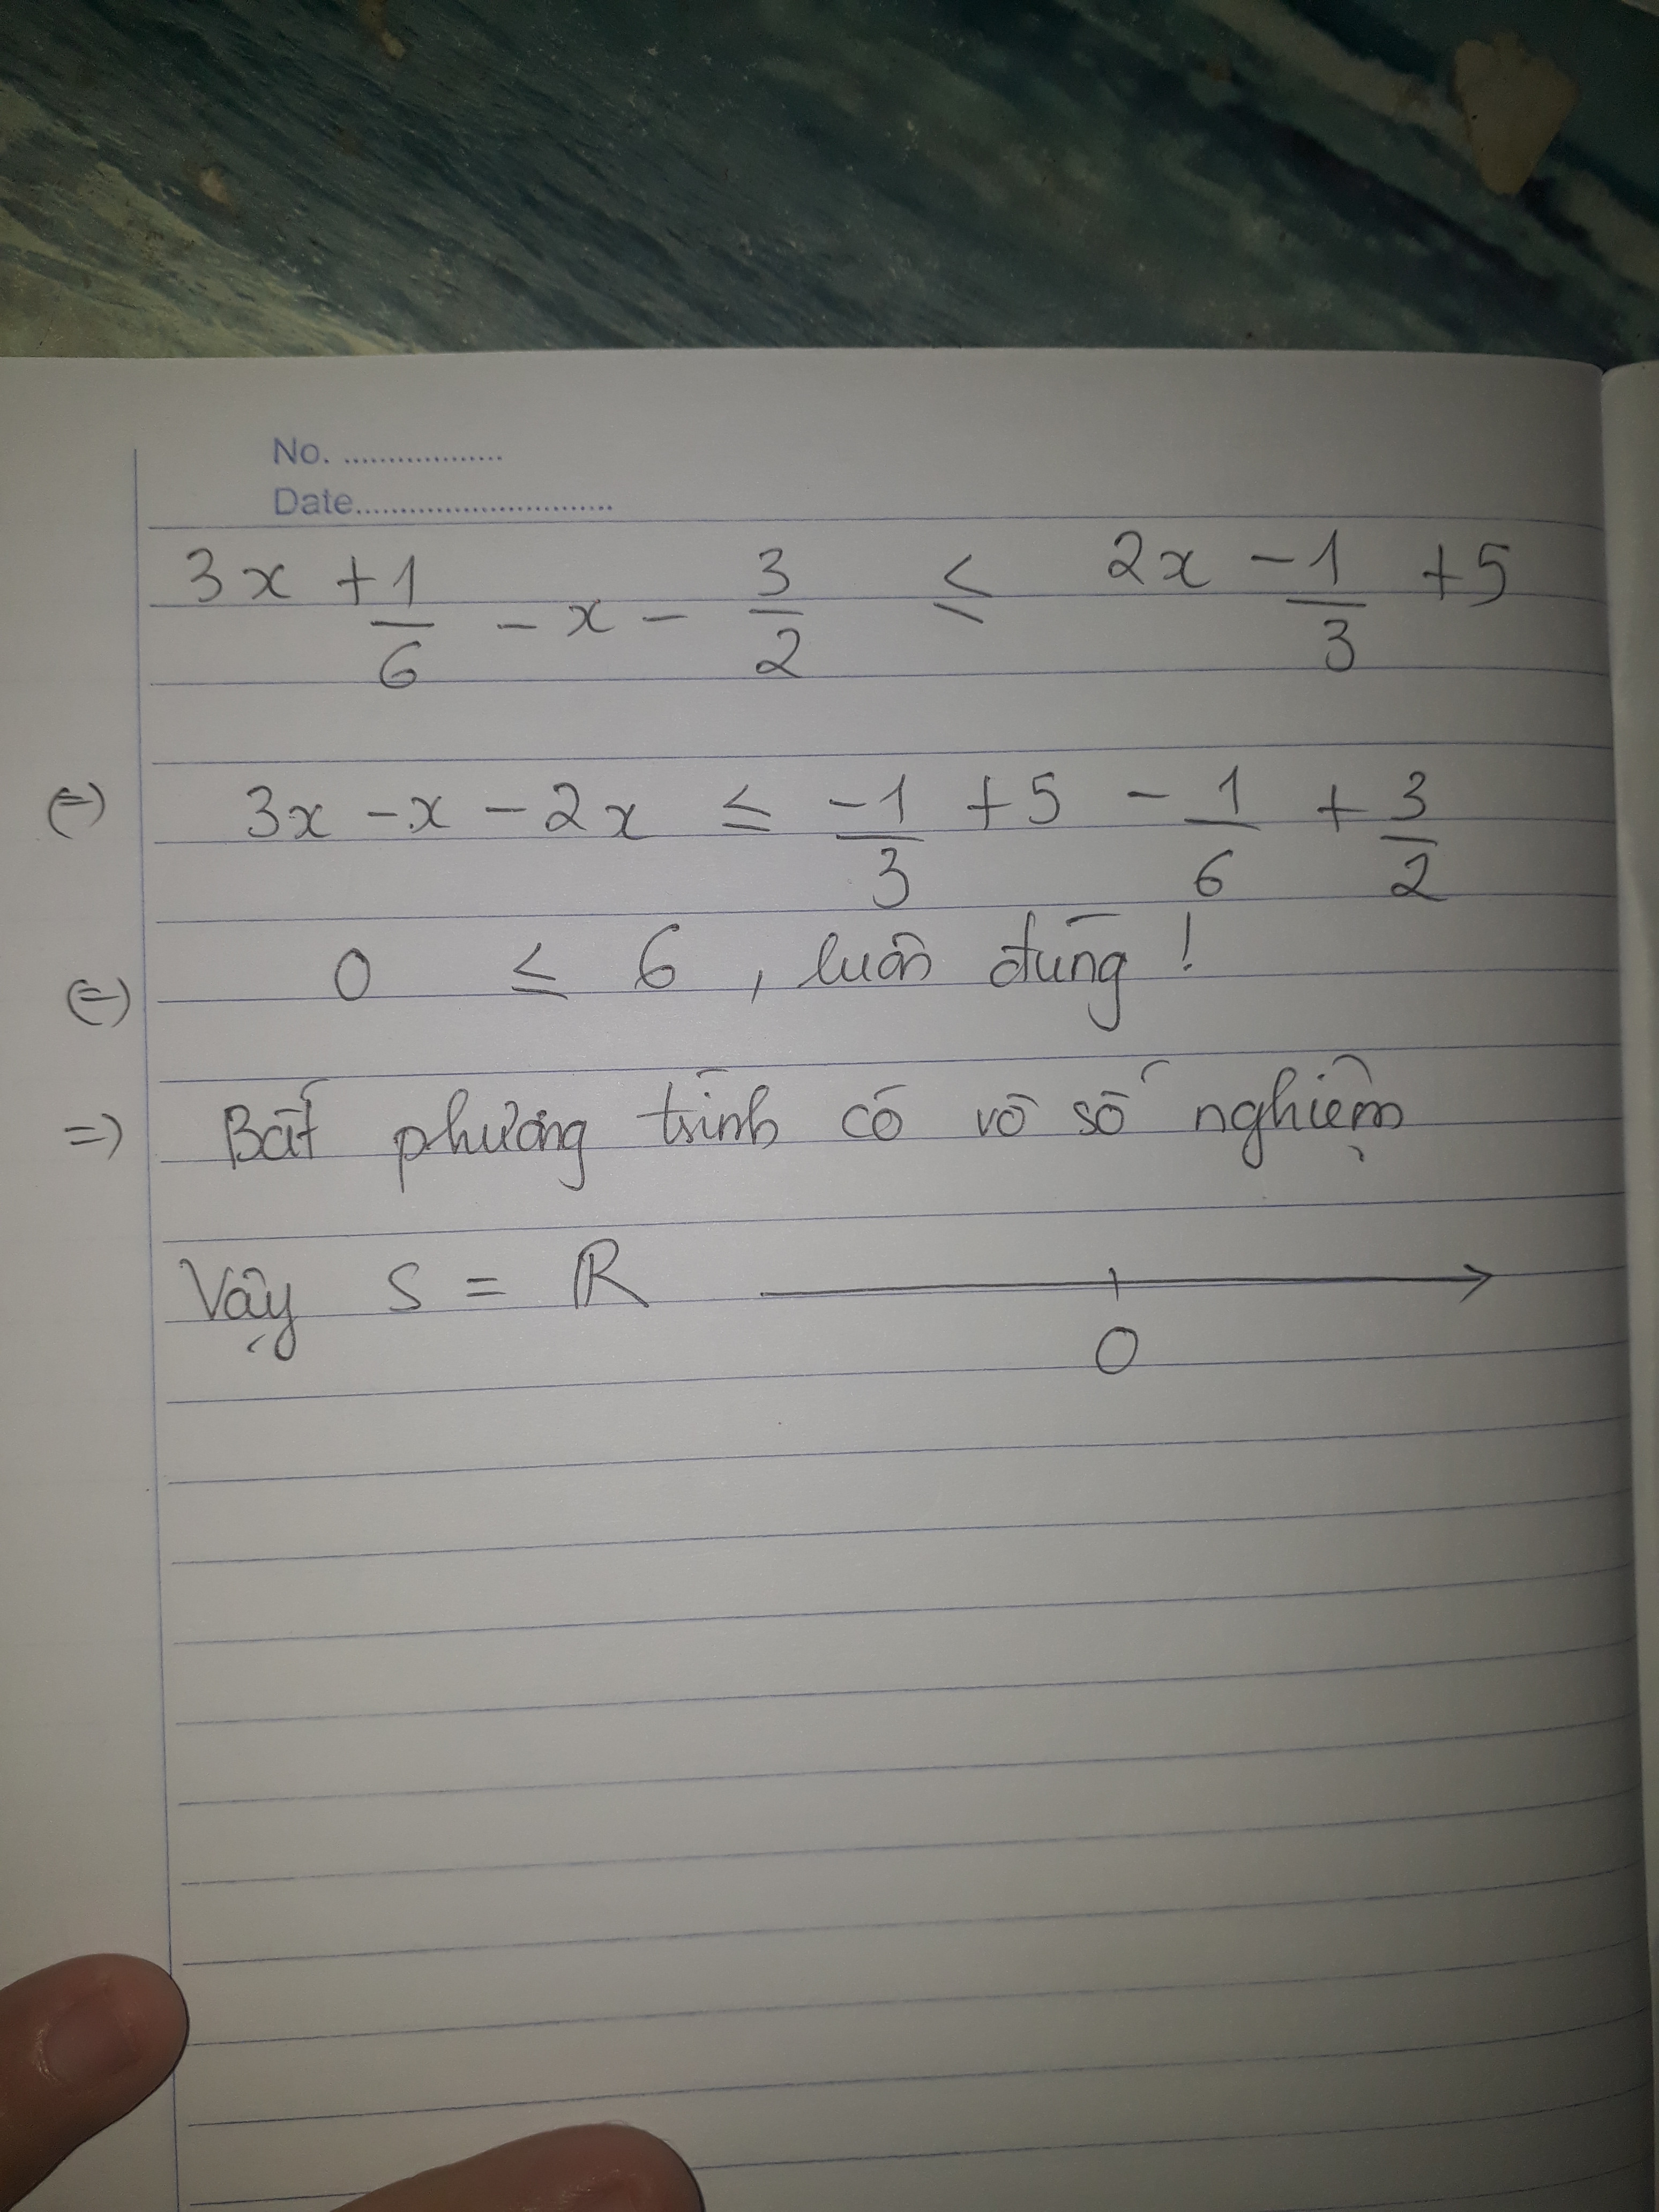 No. ..................
Date.............................
3x + 1/6 - x - 3/2 ≤ 2x - 1/3 + 5
(=) 3x - x - 2x ≤ -1/3 + 5 - 1/6 + 3/2
(=) 0 ≤ 6 , luôn đúng !
=) Bất phương trình có vô số nghiệm
Vậy S = ℝ
0